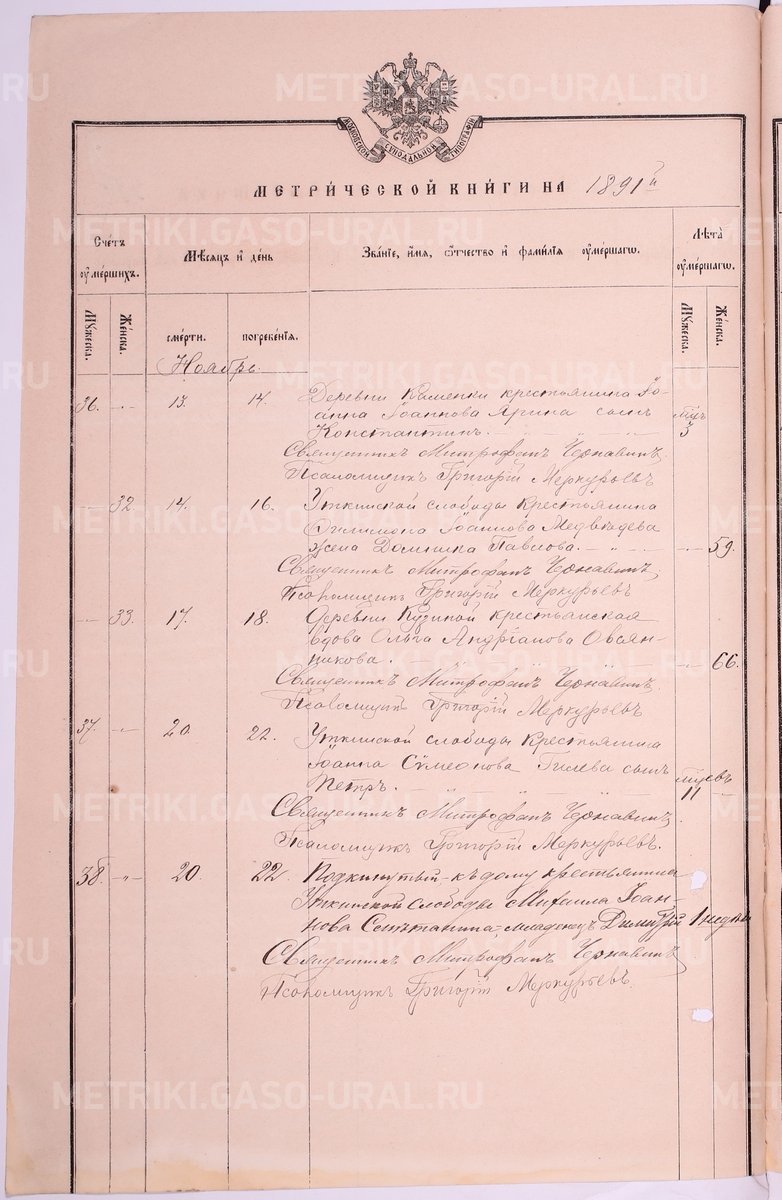 МОСКОВСКОЙ СѴНОДАЛЬНОЙ ТИПОГРАФІИ
МЕТРИ́ЧЕСКОЙ КНИ́ГИ НА 1891й
Сче́тъ оу҆ме́ршихъ.
Мѣ́сяцъ и҆ де́нь
Зва́нїе, и҆́мя, ѻ҆́тчество и҆ фами́лїя оу҆ме́ршагѡ.
Лѣ́та оу҆ме́ршагѡ.
Му́жеска.
Же́нска.
сме́рти.
погребе́нїя.
Му́жеска.
Же́нска.
Ноябрь.
36. -"- 13. 14. Деревни Каменки крестьянина Іо-
анна Іоаннова Ярина сынъ
Константинъ. 3
Священникъ Митрофанъ Чернавинъ.
Псаломщикъ Григорій Меркурьевъ
-"- 32. 14. 16. Уткинской слободы крестьянина
Филимона Іоаннова Медвѣдева
жена Домника Павлова. -"- 59.
Священникъ Митрофанъ Чернавинъ.
Псаломщикъ Григорій Меркурьевъ
-"- 33. 17. 18. Деревни Кузиной крестьянская
вдова Ольга Андріанова Овсян-
никова. -"- 66.
Священникъ Митрофанъ Чернавинъ.
Псаломщикъ Григорій Меркурьевъ
37. -"- 20. 22. Уткинской слободы крестьянина
Іоанна Сѵмеонова Гилева сынъ
Петръ. 11
Священникъ Митрофанъ Чернавинъ,
Псаломщикъ Григорій Меркурьевъ.
38. -"- 20. 22. Подкинутый къ дому крестьянина
Уткинской слободы Михаила Іоан-
нова младенецъ Димитрій 1 недѣли
Священникъ Митрофанъ Чернавинъ
Псаломщикъ Григорій Меркурьевъ.
METRIKI.GASO-URAL.RU